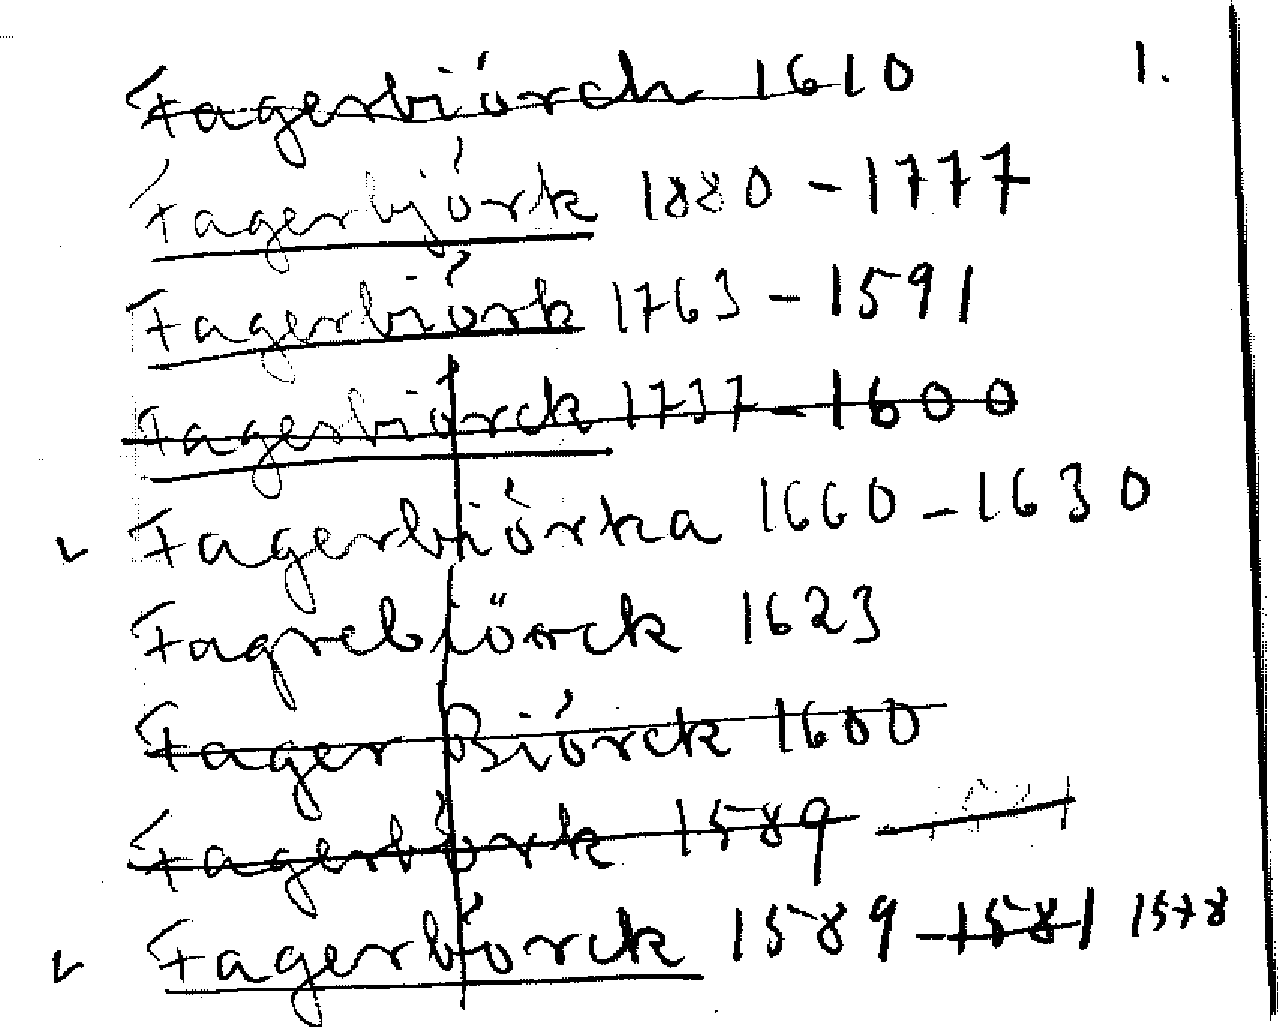 Fagerbiörch 1610 1.
Fagerbjörk 1880 - 1777
Fagerbiörk 1763 - 1591
Fagerbiörck 1737 - 1600
Fagerbiörka 1660 - 1630
Fagrebiörck 1623
Fager Biörck 1600
Fagerbörk 1589
Fagerbörck 1589 - 1581 1578